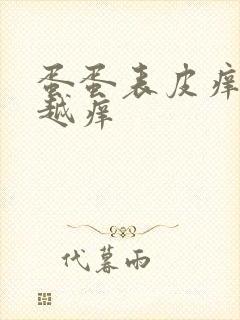 蛋蛋表皮痒
越痒
代暮雨